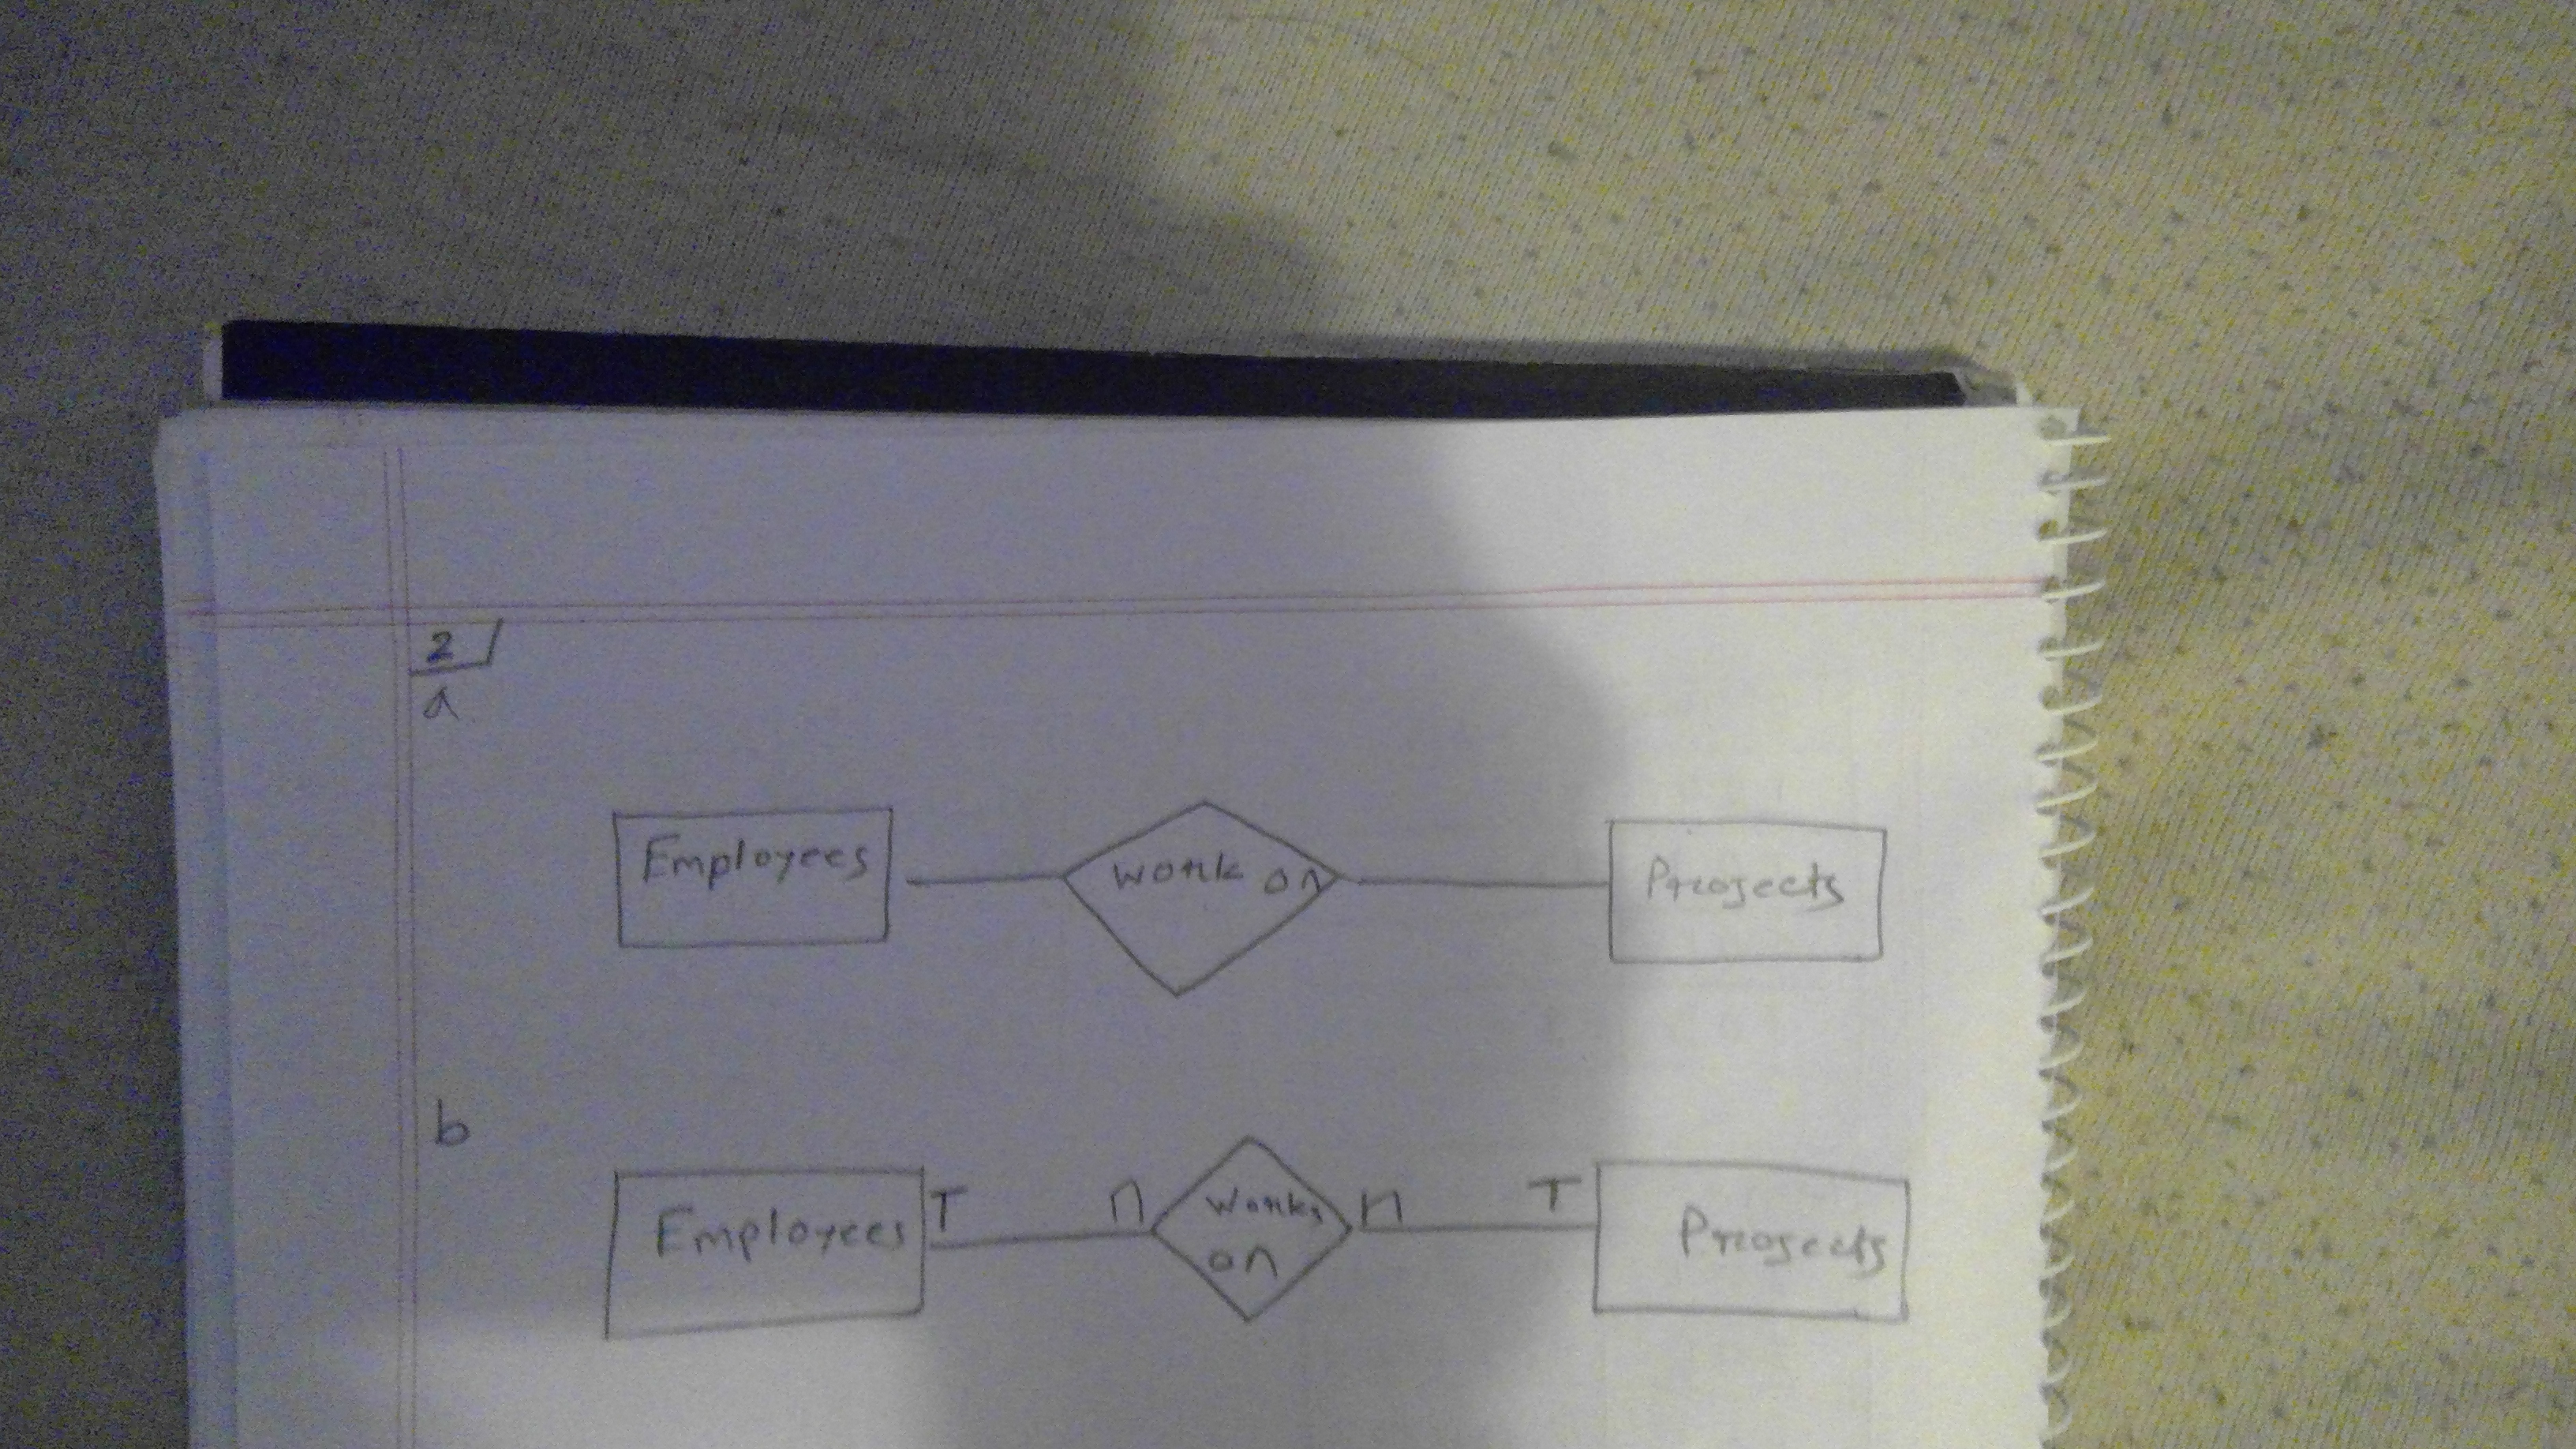 2
a
Employees work on Projects
b
Employees T n works n T Projects
on